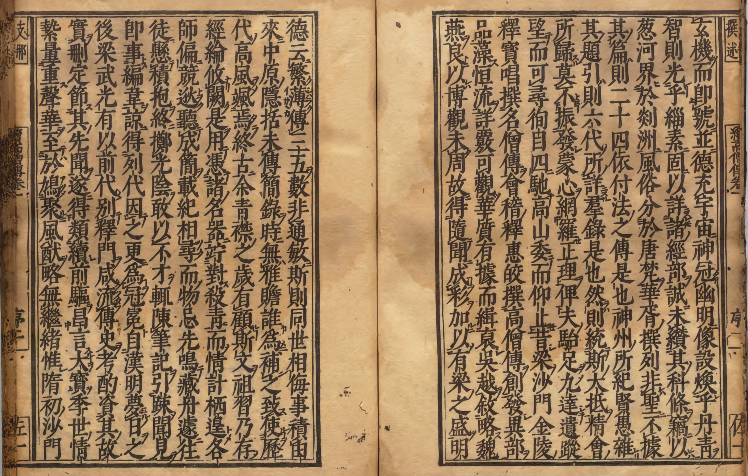 撰述
玄機而即號並德充宇宙神冠幽明像設煥乎丹靑
智則光乎緗素固以詳諸經部誠未纘其科條竊以
葱河界於剡洲風俗分於唐梵華胥撰列非聖不據
其篇則二十四依付法之傳是也神州所紀賢愚雜
其題引則六代所詳羣錄是也然則統斯大抵精會
所歸莫不振發蒙心網羅正理俾夫駘足九達遺蹤
望而可尋徇目四馳高山委而仰止昔梁沙門金陵
釋寶唱撰名僧傳會稽釋惠皎撰高僧傳創發異部
品藻恒流詳覈可觀華質有據而緝裒吳越敘略魏
燕良以博觀未周故得隨聞成彩加以有梁之盛明
德云繁薄傳三五數非通敏斯則同世相侮事積由
來中原隱括未傳簡錄時無雅贍誰爲補之致使歷
代高風颯焉終古余青襟之歲有顧斯文祖習乃存
經綸攸闕是用憑諸名器竚對殺靑而情計栖遑各
師偏競逖聽成簡載紀相尋而物忌先鳴藏舟遽往
徒懸積抱終擲光陰敢以不才輒陳筆記引疎聞見
即事編韋諒得列代因之更爲冠冕自漢明夢日之
後梁武光有以前代別釋門咸流傳史考酌資其故
實刪定節其先聞遂得類續前驅昌言大寶季世情
縶量重聲華至於鳩聚風猷略無繼緒惟隋初沙門
支那